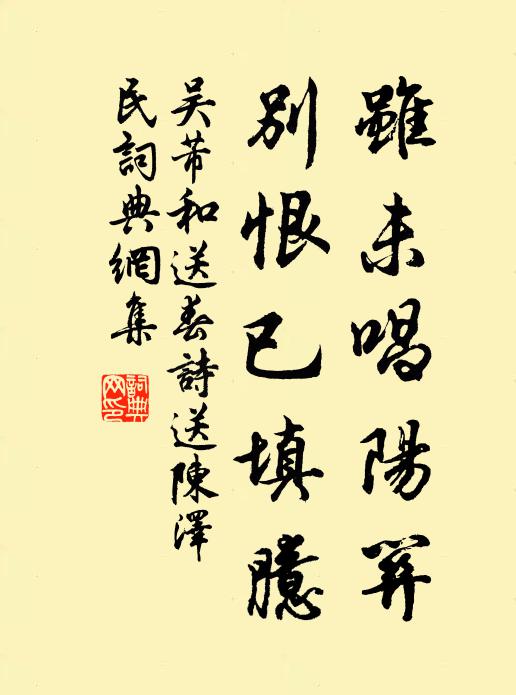 雖未唱陽關
別恨已填臆
吴芾和送春詩送陳澤
民詞典網集
詞典
网印